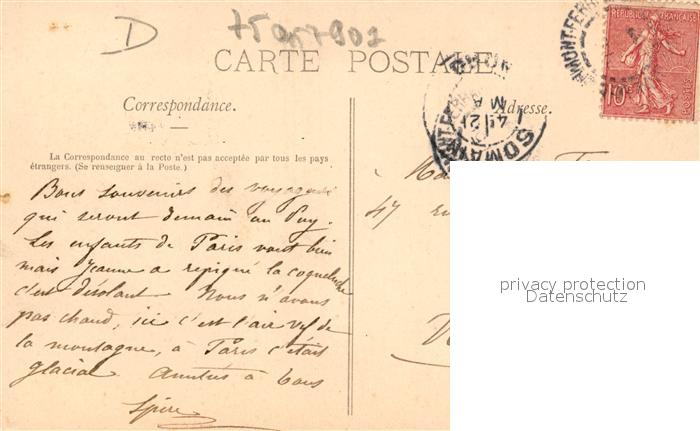 D
75957901
CARTE POSTALE
REPUBLIQUE FRANÇAISE
10c
POSTES
Correspondance.
Adresse.
La Correspondance au recto n'est pas acceptée par tous les pays
étrangers. (Se renseigner à la Poste.)
Bons souvenirs des voyageurs
qui seront demain au Puy.
Les enfants de Paris vont bien
mais Jeanne a repiqué la coqueluche
c'est désolant. Nous n'avons
pas chaud, ici c'est l'air vif de
la montagne, à Paris c'était
glacial Amitiés à tous
47
privacy protection
Datenschutz